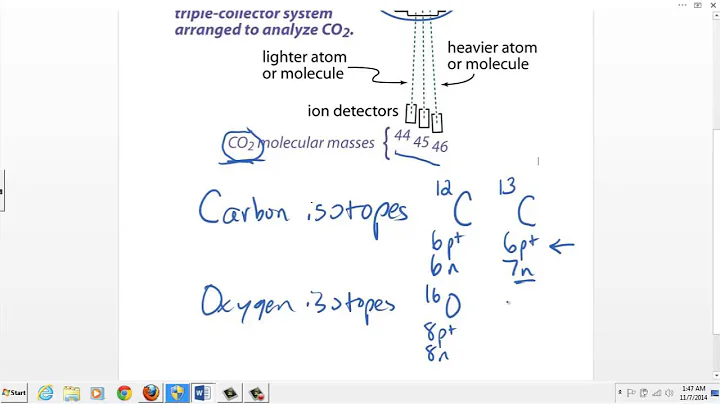 triple-collector system
arranged to analyze CO₂.
lighter atom
or molecule
heavier atom
or molecule
ion detectors
CO₂ molecular masses { 44 45 46
Carbon isotopes ¹²C ¹³C
6p⁺ 6p⁺ ←
6n 7n
Oxygen isotopes ¹⁶O
8p⁺
8n
Start
1:47 AM
11/7/2014